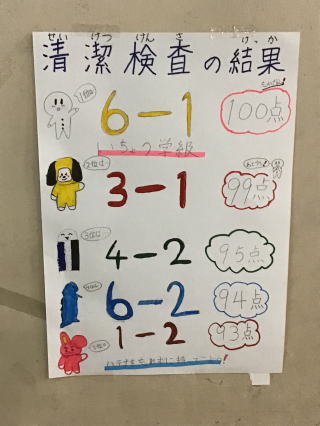 せいけつけんさ けっか
清潔検査の結果
1位は
6-1 100点
いちょう学級
2位は
3-1 99点
3位は
4-2 95点
6-2 94点
1-2 93点